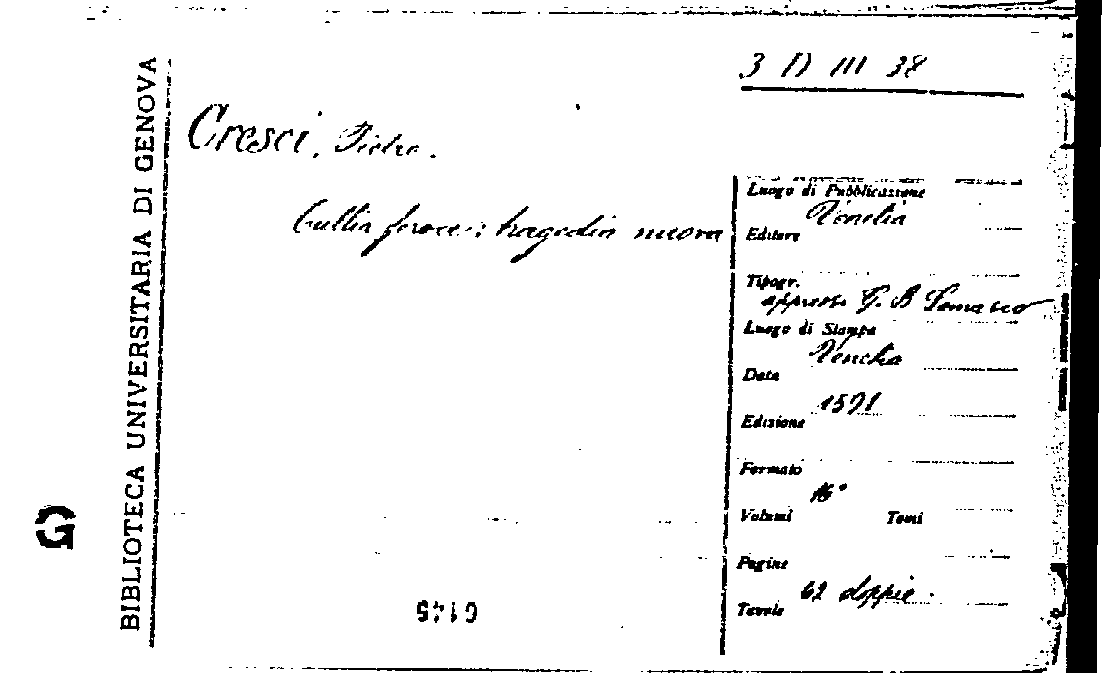 BIBLIOTECA UNIVERSITARIA DI GENOVA
G
3 D III 38
Cresci, Pietro.
Tullia feroce: tragedia nuova
Luogo di Pubblicazione
Venetia
Editore
Tipogr.
appresso G. B Somasco
Luogo di Stampa
Venetia
Data
1591
Edizione
Formato
16°
Volumi Tomi
Pagine
62 doppie.
Tavole